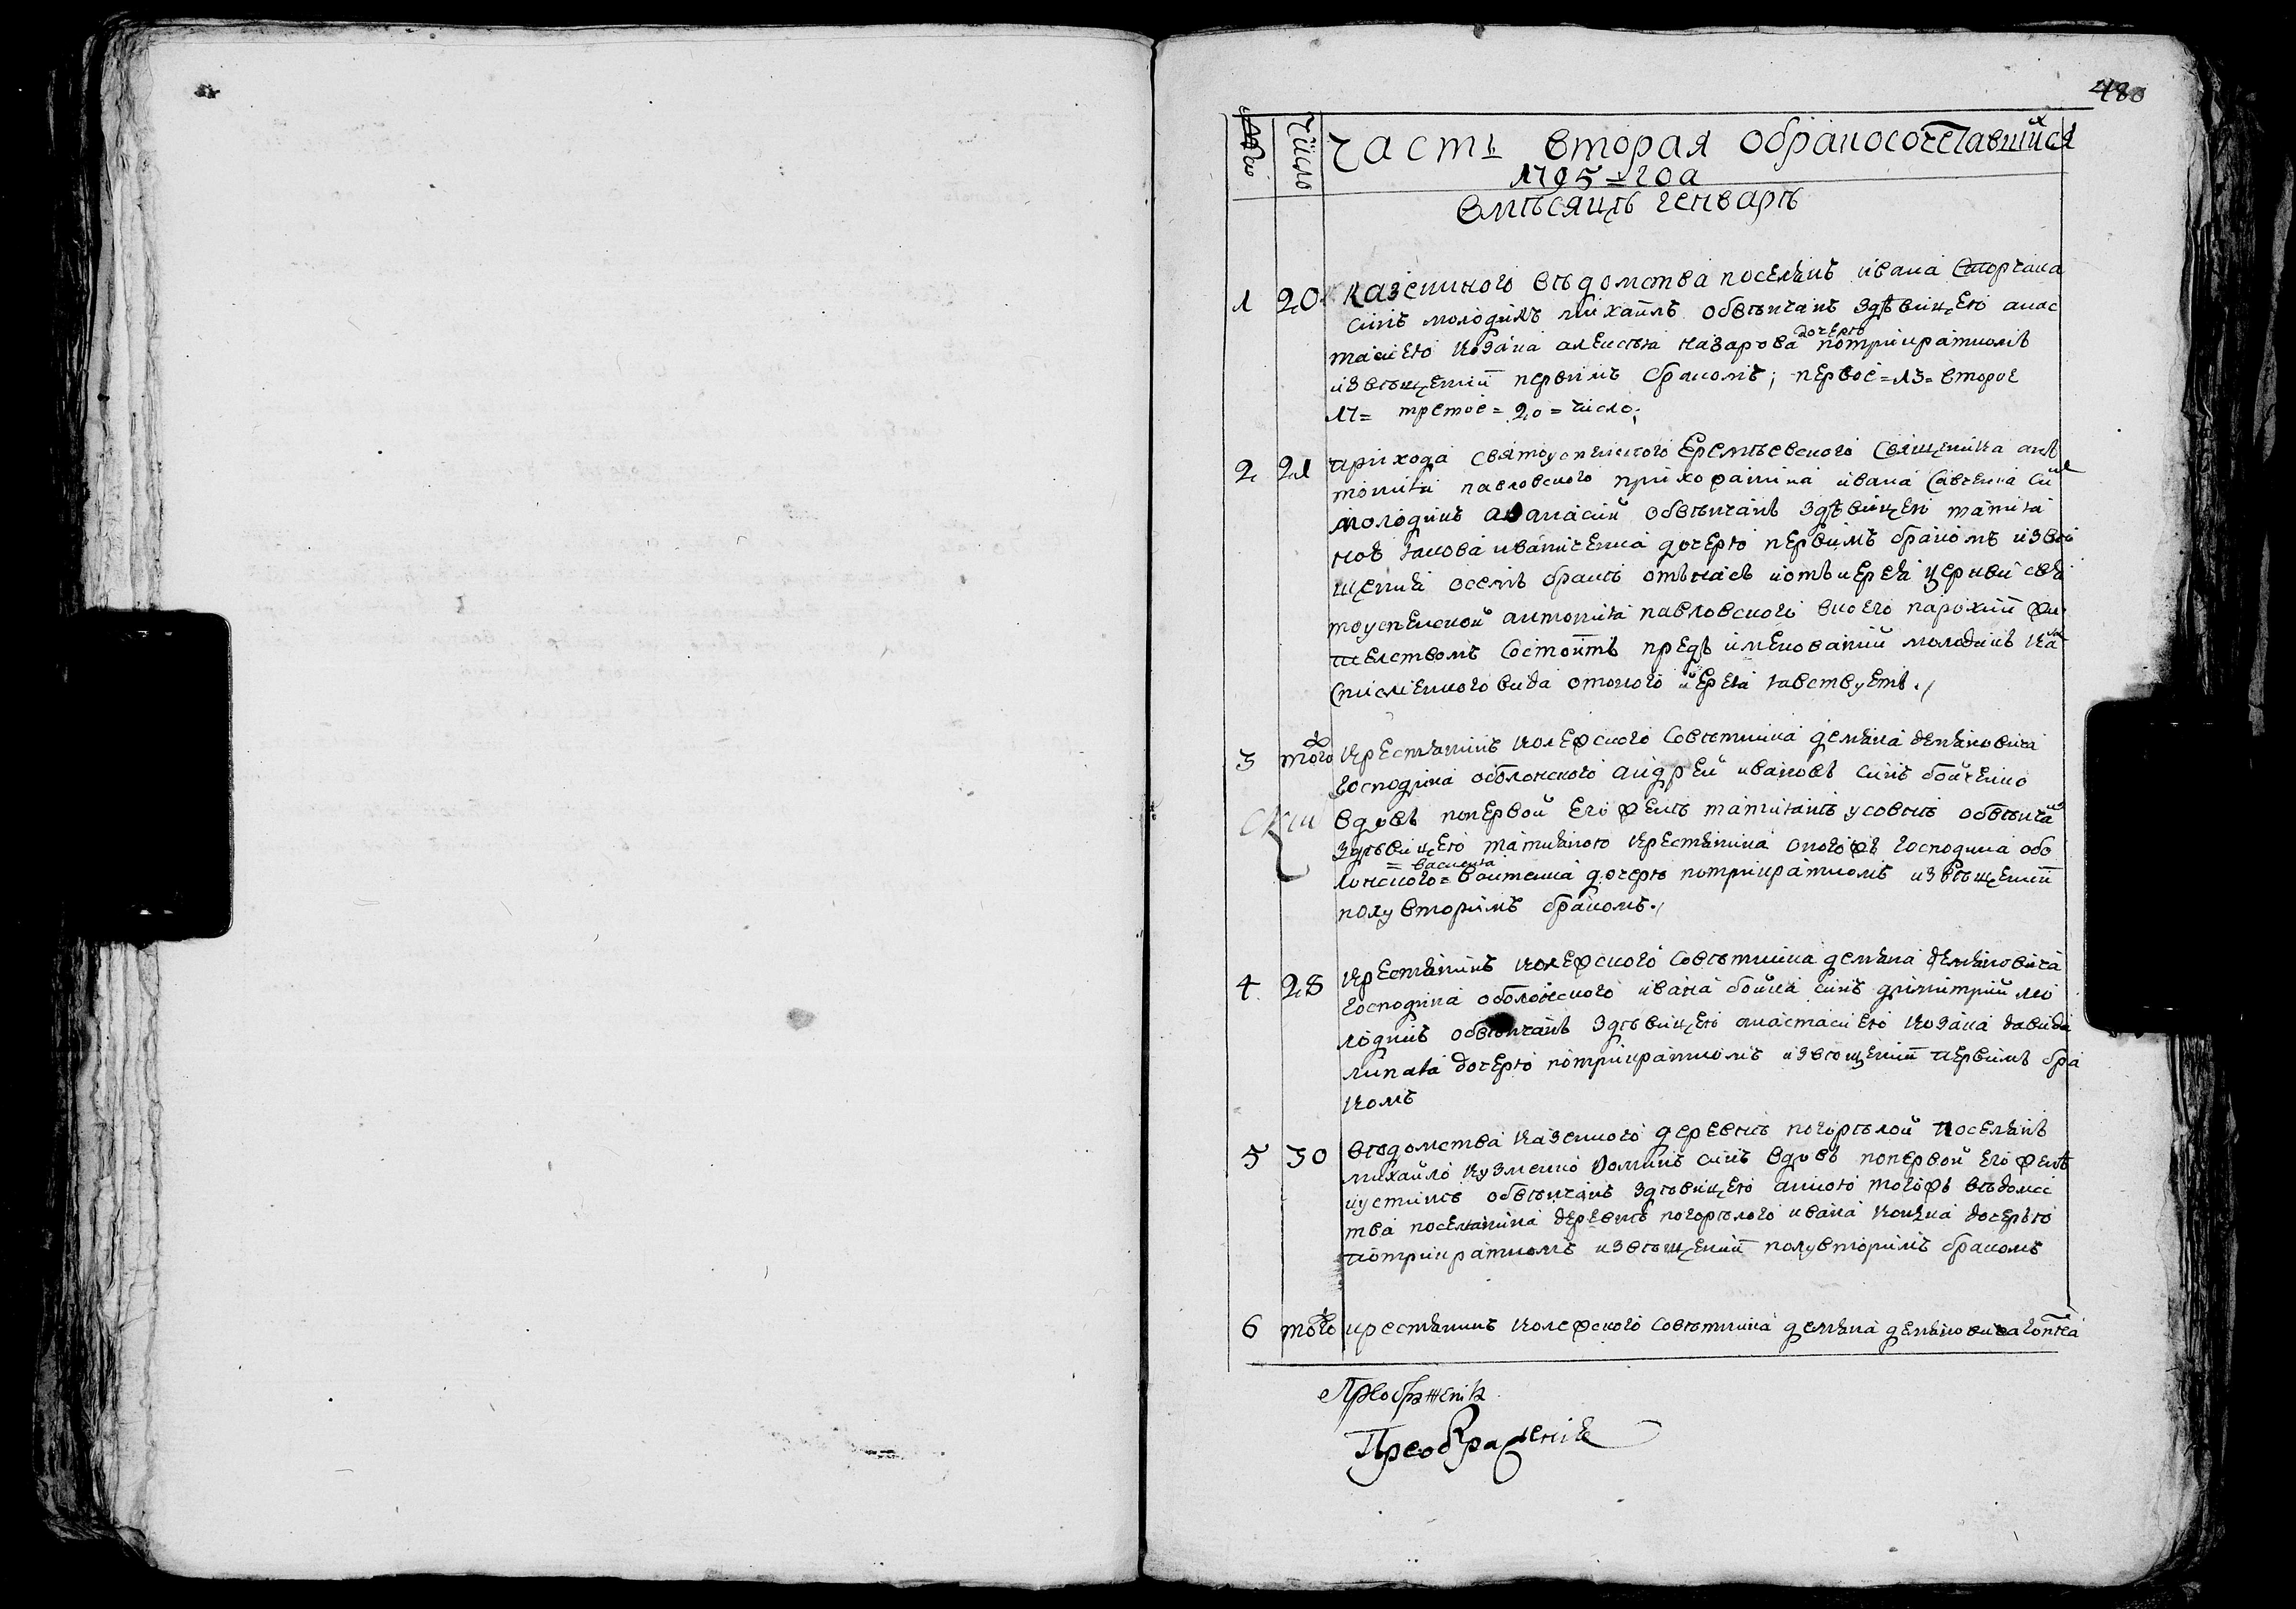 480
число
часть вторая обракосочетавшихся
1795 года
вмѣсяцѣ генварѣ
1 20 казенного вѣдомства поселянъ ивана
синъ молодикъ михаилъ обвѣнчанъ здѣвицею анас
тасиею козака алексѣя назарова дочерю потрикратномъ
извѣщении первимъ бракомъ; первое = 13 = второе
17 = третое = 20 = число;
2 21 прихода святоуспенского Еремѣевского священика ан
тония павловского прихожанина ивана савченка син
молодикъ афанасий обвѣнчанъ здѣвицею
якова иваниченка дочерю первимъ бракомъ извѣ
щения осемъ бракѣ отънасъ иотъиерея церкви свя
тоуспенской антония павловского вкоего парохии жи
телствомъ состоитъ предъ именований молодикъ как
списменного вида отоного иерея явствуетъ./
3 тогож крестянинъ колежского совѣтника демяна демяновича
господина оболонского андрей ивановъ синъ бойченко
вдовъ попервой его женѣ обвѣнчан
здѣвицею татияною крестянина оногожъ господина обо
= василия
лонского = войтенка дочерю потрикратномъ извѣщении
полувторимъ бракомъ./
4 28 крестянинъ колежского совѣтника демяна демяновича
господина оболонского ивана бойка синъ димитрий мо
лодикъ обвѣнчанъ здѣвицею анастасиею козака давида
липая дочерю потрикратномъ извѣщении первимъ бра
комъ
5 30 вѣдомства казенного деревнѣ погорѣлой поселянъ
михайло кузменко фоминъ синъ вдовъ попервой его женѣ
иустинѣ обвѣнчанъ здѣвицею анною тогожъ вѣдомс
тва поселянина деревнѣ погорѣлого ивана дочерю
потрикратномъ извѣщении полувторимъ бракомъ
6 тогож крестянинъ колежского совѣтника демяна демяновича
Преображения
Преображение